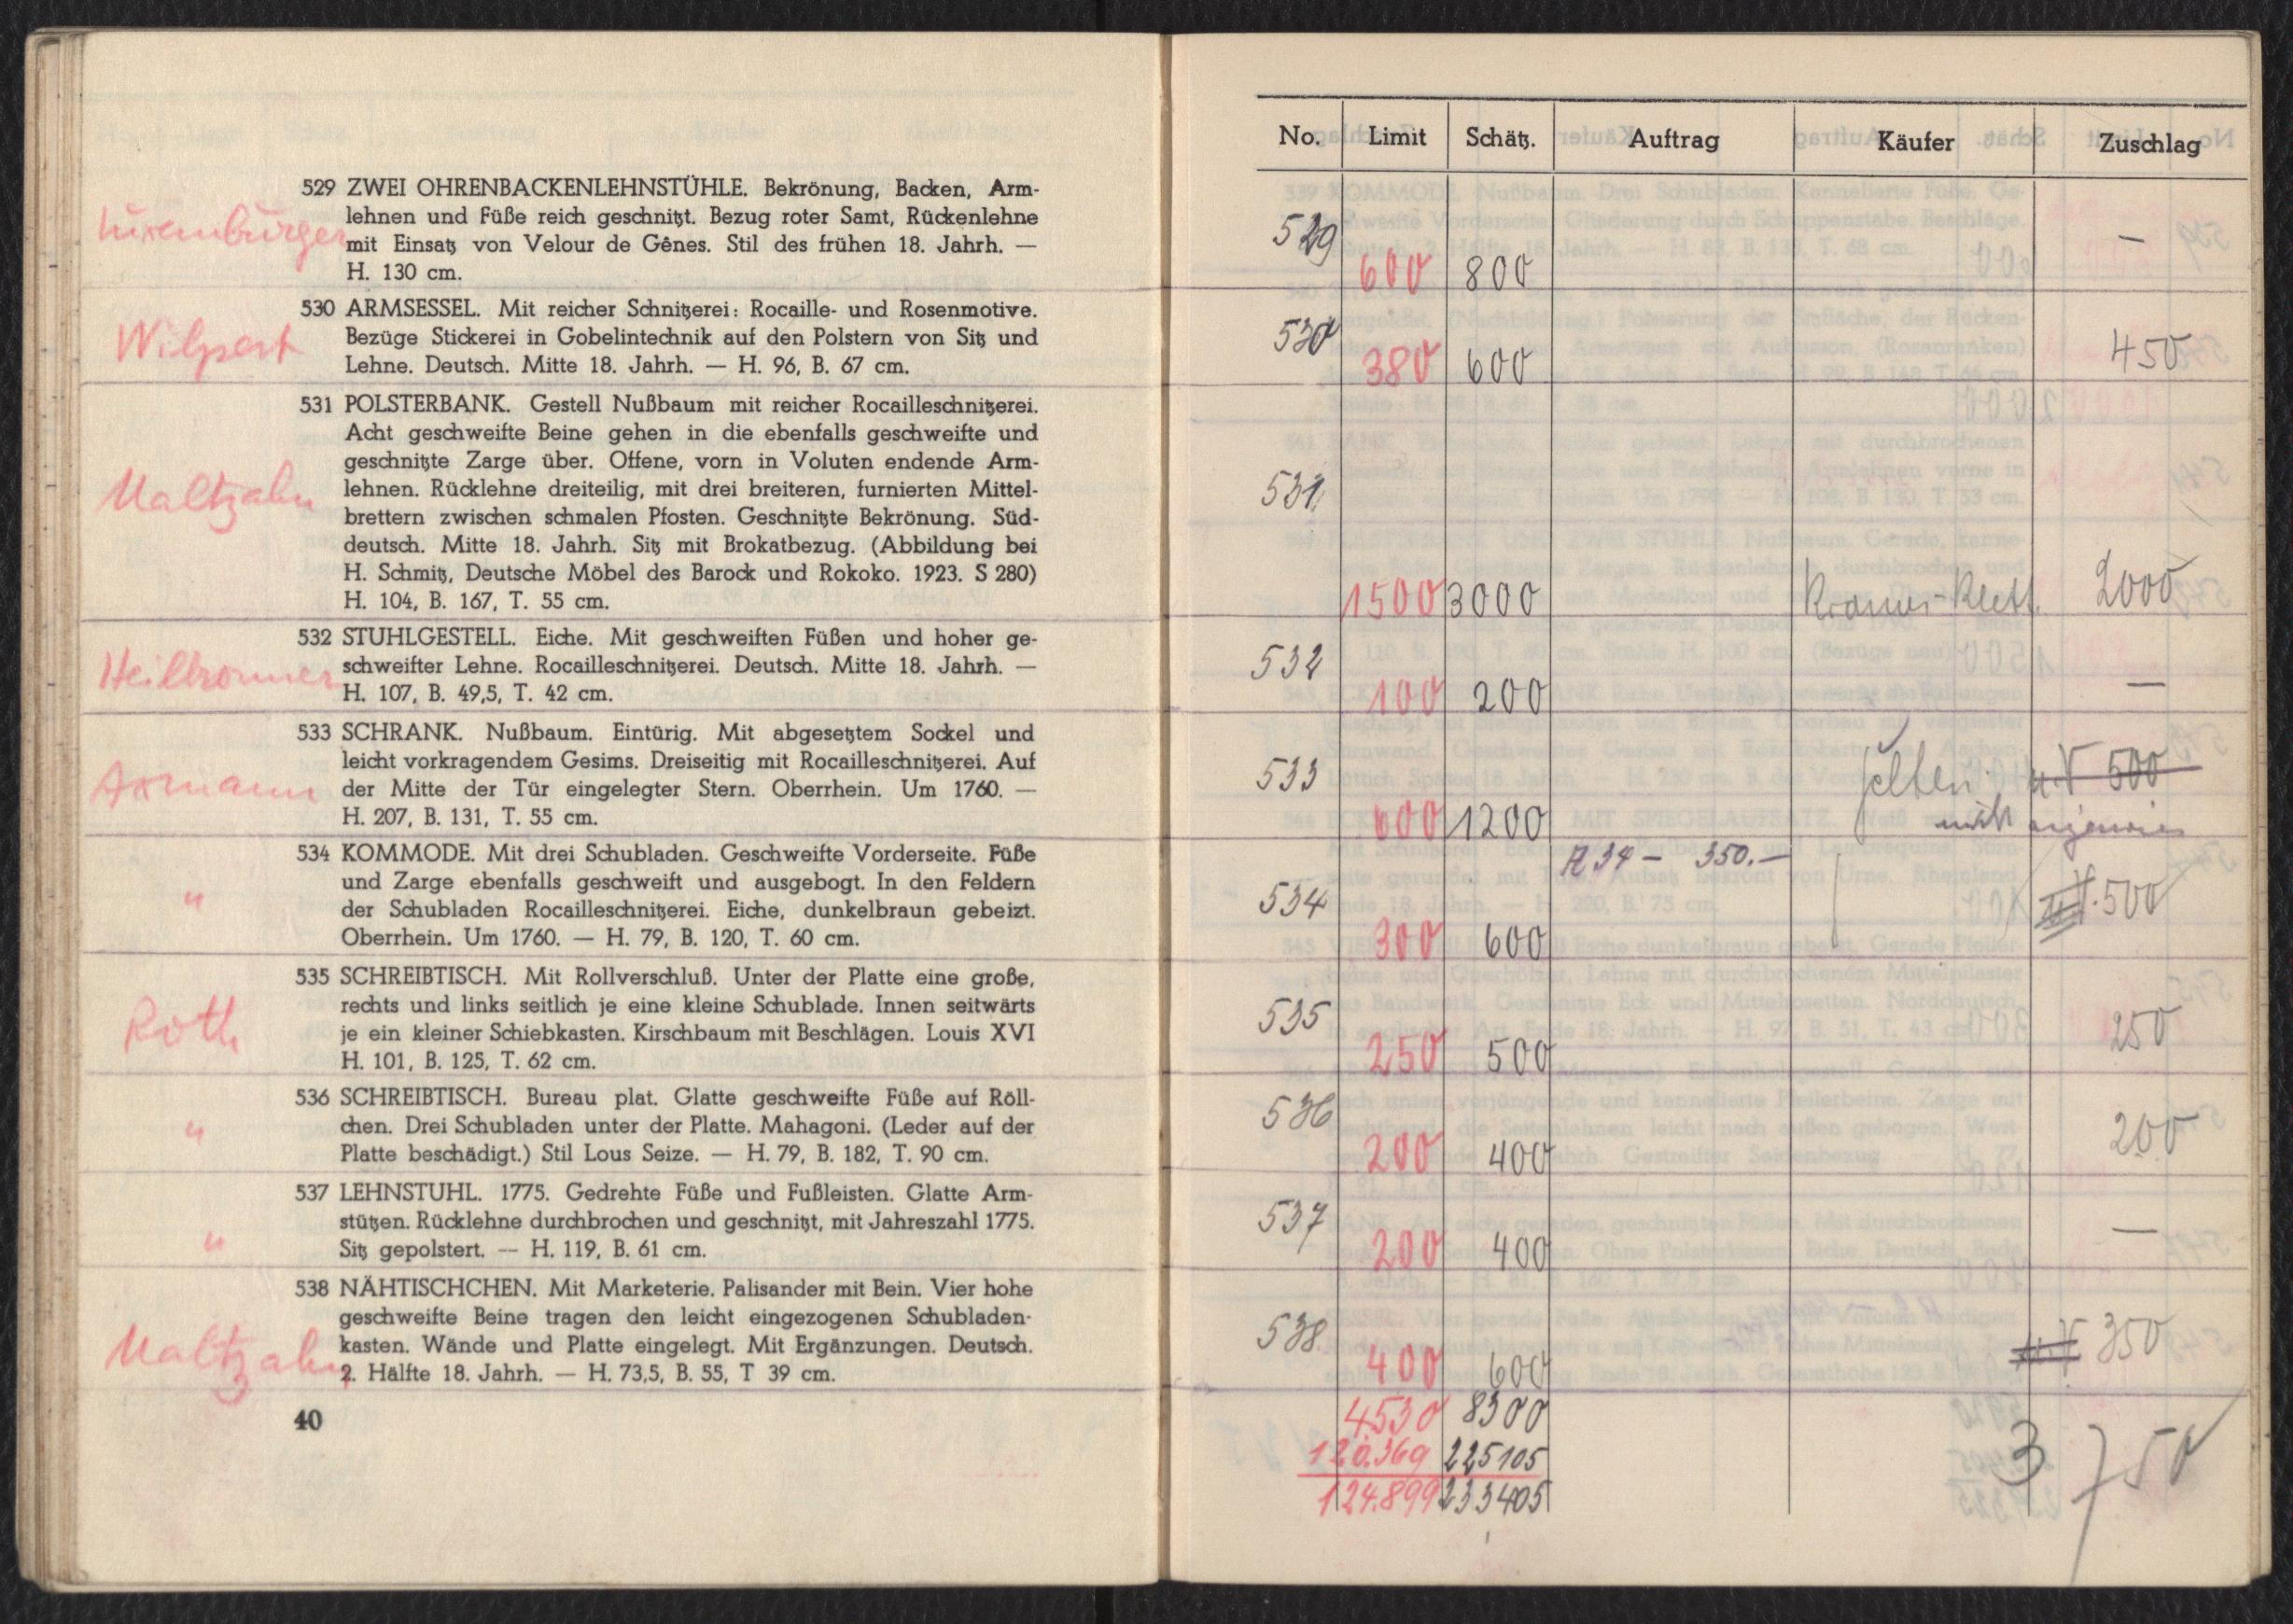 529 ZWEI OHRENBACKENLEHNSTÜHLE. Bekrönung, Backen, Arm-
lehnen und Füße reich geschnitzt. Bezug roter Samt, Rückenlehne
mit Einsatz von Velour de Gênes. Stil des frühen 18. Jahrh. —
H. 130 cm.
Luxemburger
530 ARMSESSEL. Mit reicher Schnitzerei: Rocaille- und Rosenmotive.
Bezüge Stickerei in Gobelintechnik auf den Polstern von Sitz und
Lehne. Deutsch. Mitte 18. Jahrh. — H. 96, B. 67 cm.
Wilpert
531 POLSTERBANK. Gestell Nußbaum mit reicher Rocailleschnitzerei.
Acht geschweifte Beine gehen in die ebenfalls geschweifte und
geschnitzte Zarge über. Offene, vorn in Voluten endende Arm-
lehnen. Rücklehne dreiteilig, mit drei breiteren, furnierten Mittel-
brettern zwischen schmalen Pfosten. Geschnitzte Bekrönung. Süd-
deutsch. Mitte 18. Jahrh. Sitz mit Brokatbezug. (Abbildung bei
H. Schmitz, Deutsche Möbel des Barock und Rokoko. 1923. S 280)
H. 104, B. 167, T. 55 cm.
Maltzahn
532 STUHLGESTELL. Eiche. Mit geschweiften Füßen und hoher ge-
schweifter Lehne. Rocailleschnitzerei. Deutsch. Mitte 18. Jahrh. —
H. 107, B. 49,5, T. 42 cm.
Heilbronner
533 SCHRANK. Nußbaum. Eintürig. Mit abgesetztem Sockel und
leicht vorkragendem Gesims. Dreiseitig mit Rocailleschnitzerei. Auf
der Mitte der Tür eingelegter Stern. Oberrhein. Um 1760. —
H. 207, B. 131, T. 55 cm.
Axmann
534 KOMMODE. Mit drei Schubladen. Geschweifte Vorderseite. Füße
und Zarge ebenfalls geschweift und ausgebogt. In den Feldern
der Schubladen Rocailleschnitzerei. Eiche, dunkelbraun gebeizt.
Oberrhein. Um 1760. — H. 79, B. 120, T. 60 cm.
"
535 SCHREIBTISCH. Mit Rollverschluß. Unter der Platte eine große,
rechts und links seitlich je eine kleine Schublade. Innen seitwärts
je ein kleiner Schiebkasten. Kirschbaum mit Beschlägen. Louis XVI
H. 101, B. 125, T. 62 cm.
Roth
536 SCHREIBTISCH. Bureau plat. Glatte geschweifte Füße auf Röll-
chen. Drei Schubladen unter der Platte. Mahagoni. (Leder auf der
Platte beschädigt.) Stil Lous Seize. — H. 79, B. 182, T. 90 cm.
"
537 LEHNSTUHL. 1775. Gedrehte Füße und Fußleisten. Glatte Arm-
stützen. Rücklehne durchbrochen und geschnitzt, mit Jahreszahl 1775.
Sitz gepolstert. — H. 119, B. 61 cm.
"
538 NÄHTISCHCHEN. Mit Marketerie. Palisander mit Bein. Vier hohe
geschweifte Beine tragen den leicht eingezogenen Schubladen-
kasten. Wände und Platte eingelegt. Mit Ergänzungen. Deutsch.
2. Hälfte 18. Jahrh. — H. 73,5, B. 55, T 39 cm.
Maltzahn
40
No. Limit Schätz. Auftrag Käufer Zuschlag
529 600 800 —
530 380 600 450
531 1500 3000 2000
532 100 200 —
533 600 1200 500
nicht
534 300 600 350.— 500
535 250 500 250
536 200 400 200
537 200 400 —
538 400 600 350
4530 8300
120.369 225105
124.899 233405
3750